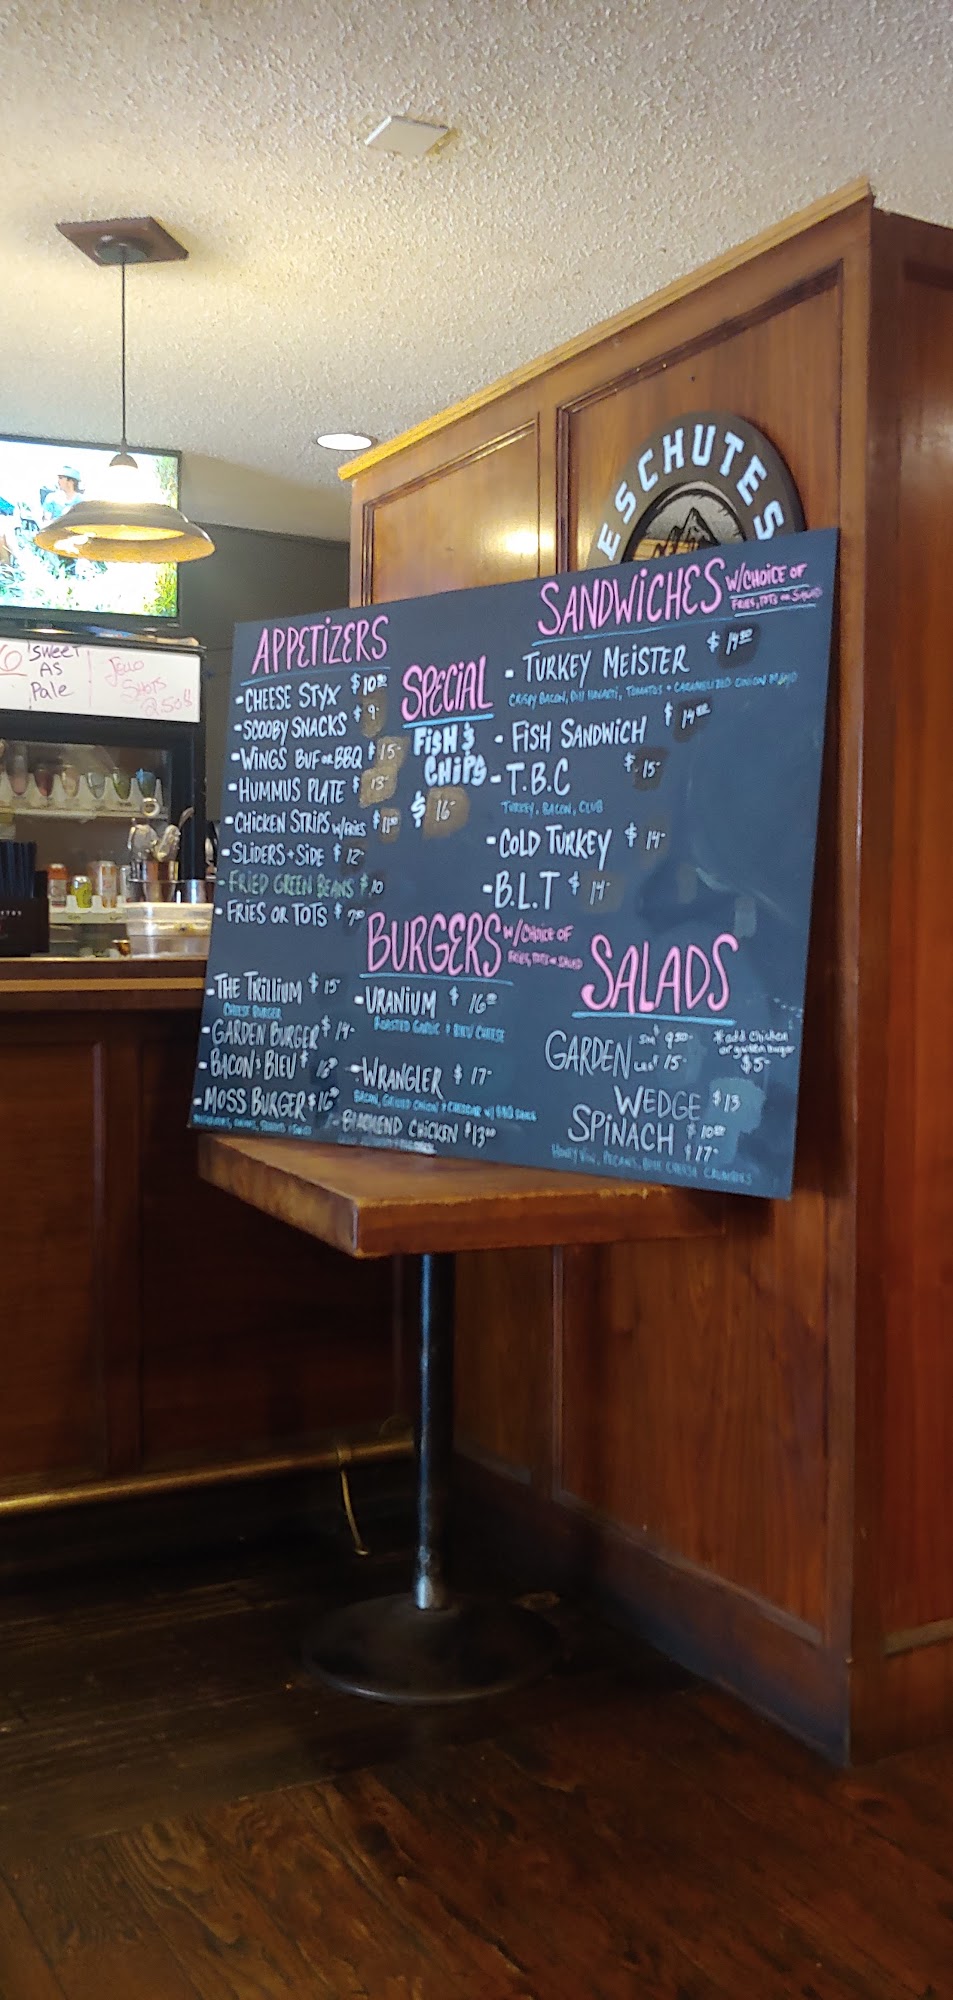 ESCHUTES
Sweet
AS
Pale
Jello
Shots
2.50$
APPETIZERS
-CHEESE STYX $10.50
-SCOOBY SNACKS $9-
-WINGS BUF OR BBQ $15-
-HUMMUS PLATE $13-
-CHICKEN STRIPS W/FRIES $11.50
-SLIDERS + SIDE $12-
-FRIED GREEN BEANS $10
-FRIES OR TOTS $7.50
SPECIAL
FISH &
CHIPS
$16-
SANDWICHES W/CHOICE OF
FRIES, TOTS OR SALAD
-TURKEY MEISTER $14.50
CRISPY BACON, DILL HAVARTI, TOMATOS + CARAMELIZED ONION MAYO
-FISH SANDWICH $14.50
-T.B.C $15-
TURKEY, BACON, CLUB
-COLD TURKEY $14-
-B.L.T $14-
BURGERS W/CHOICE OF
FRIES, TOTS OR SALAD
-THE TRILLIUM $15-
CHEESE BURGER
-GARDEN BURGER $14-
-BACON & BLEU $16.50
-MOSS BURGER $16.50
-URANIUM $16.50
ROASTED GARLIC & BLEU CHEESE
-WRANGLER $17-
BACON, GRILLED ONION & CHEDDAR W/ BBQ SAUCE
-BLACKEND CHICKEN $13.00
SALADS
GARDEN Sm $9.50-
LRG $15-
*add chicken
or garden burger
$5-
WEDGE $13
SPINACH $10.50
$17-
HONEY VIN, PECANS, BLUE CHEESE CRUMBLES